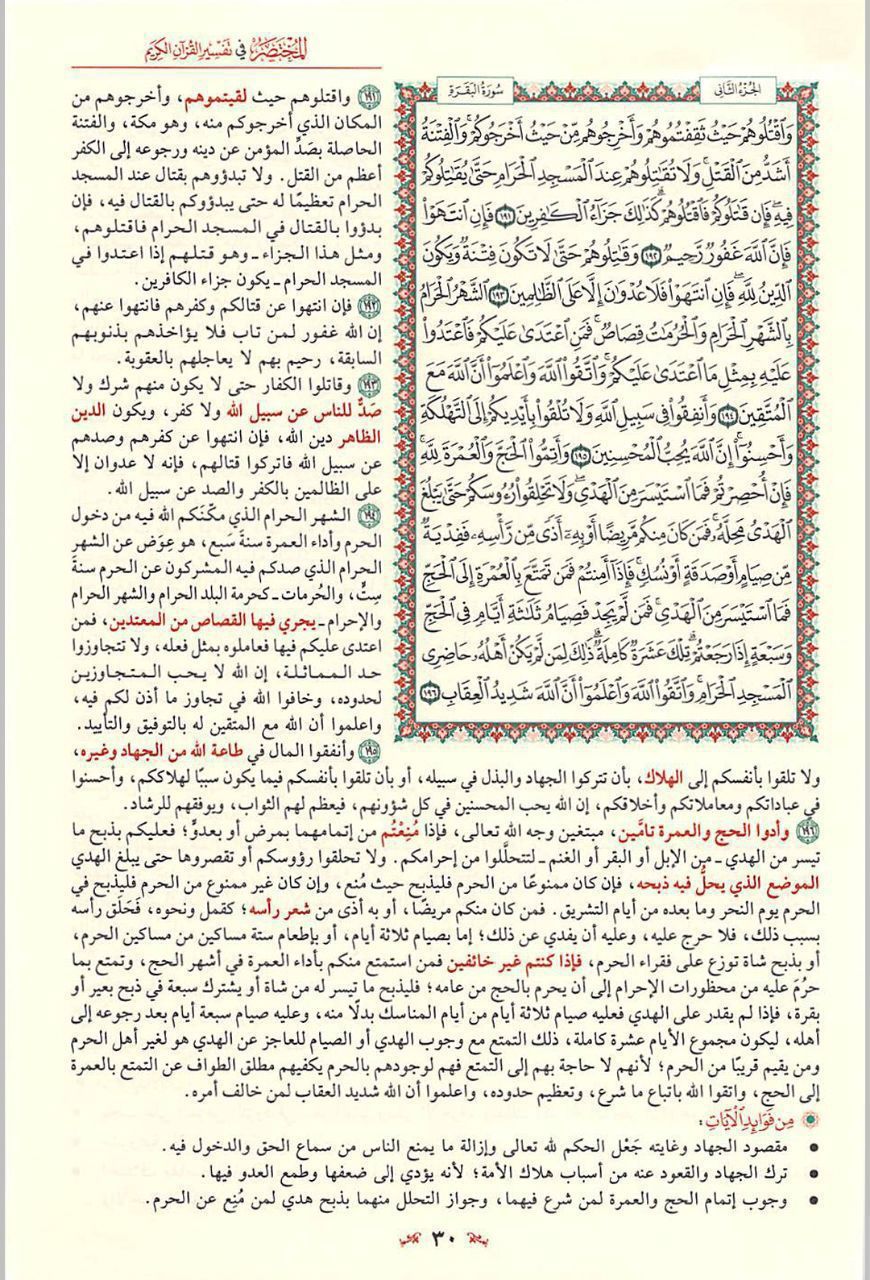 المختصر في تفسير القرآن الكريم
الجزء الثاني
سورة البقرة
وَاقْتُلُوهُمْ حَيْثُ ثَقِفْتُمُوهُمْ وَأَخْرِجُوهُم مِّنْ حَيْثُ أَخْرَجُوكُمْ ۚ وَالْفِتْنَةُ
أَشَدُّ مِنَ الْقَتْلِ ۚ وَلَا تُقَاتِلُوهُمْ عِندَ الْمَسْجِدِ الْحَرَامِ حَتَّىٰ يُقَاتِلُوكُمْ
فِيهِ ۖ فَإِن قَاتَلُوكُمْ فَاقْتُلُوهُمْ ۗ كَذَٰلِكَ جَزَاءُ الْكَافِرِينَ ١٩١ فَإِنِ انتَهَوْا
فَإِنَّ اللَّهَ غَفُورٌ رَّحِيمٌ ١٩٢ وَقَاتِلُوهُمْ حَتَّىٰ لَا تَكُونَ فِتْنَةٌ وَيَكُونَ
الدِّينُ لِلَّهِ ۖ فَإِنِ انتَهَوْا فَلَا عُدْوَانَ إِلَّا عَلَى الظَّالِمِينَ ١٩٣ الشَّهْرُ الْحَرَامُ
بِالشَّهْرِ الْحَرَامِ وَالْحُرُمَاتُ قِصَاصٌ ۚ فَمَنِ اعْتَدَىٰ عَلَيْكُمْ فَاعْتَدُوا
عَلَيْهِ بِمِثْلِ مَا اعْتَدَىٰ عَلَيْكُمْ ۚ وَاتَّقُوا اللَّهَ وَاعْلَمُوا أَنَّ اللَّهَ مَعَ
الْمُتَّقِينَ ١٩٤ وَأَنفِقُوا فِي سَبِيلِ اللَّهِ وَلَا تُلْقُوا بِأَيْدِيكُمْ إِلَى التَّهْلُكَةِ
وَأَحْسِنُوا ۛ إِنَّ اللَّهَ يُحِبُّ الْمُحْسِنِينَ ١٩٥ وَأَتِمُّوا الْحَجَّ وَالْعُمْرَةَ لِلَّهِ ۚ
فَإِنْ أُحْصِرْتُمْ فَمَا اسْتَيْسَرَ مِنَ الْهَدْيِ ۖ وَلَا تَحْلِقُوا رُءُوسَكُمْ حَتَّىٰ يَبْلُغَ
الْهَدْيُ مَحِلَّهُ ۚ فَمَن كَانَ مِنكُم مَّرِيضًا أَوْ بِهِ أَذًى مِّن رَّأْسِهِ فَفِدْيَةٌ
مِّن صِيَامٍ أَوْ صَدَقَةٍ أَوْ نُسُكٍ ۚ فَإِذَا أَمِنتُمْ فَمَن تَمَتَّعَ بِالْعُمْرَةِ إِلَى الْحَجِّ
فَمَا اسْتَيْسَرَ مِنَ الْهَدْيِ ۚ فَمَن لَّمْ يَجِدْ فَصِيَامُ ثَلَاثَةِ أَيَّامٍ فِي الْحَجِّ
وَسَبْعَةٍ إِذَا رَجَعْتُمْ ۗ تِلْكَ عَشَرَةٌ كَامِلَةٌ ۗ ذَٰلِكَ لِمَن لَّمْ يَكُنْ أَهْلُهُ حَاضِرِي
الْمَسْجِدِ الْحَرَامِ ۚ وَاتَّقُوا اللَّهَ وَاعْلَمُوا أَنَّ اللَّهَ شَدِيدُ الْعِقَابِ ١٩٦
١٩١ واقتلوهم حيث لقيتموهم، وأخرجوهم من
المكان الذي أخرجوكم منه، وهو مكة، والفتنة
الحاصلة بصَدِّ المؤمن عن دينه ورجوعه إلى الكفر
أعظم من القتل. ولا تبدؤوهم بقتال عند المسجد
الحرام تعظيمًا له حتى يبدؤوكم بالقتال فيه، فإن
بدؤوا بالقتال في المسجد الحرام فاقتلوهم،
ومثل هذا الجزاء ـ وهو قتلهم إذا اعتدوا في
المسجد الحرام ـ يكون جزاء الكافرين.
١٩٢ فإن انتهوا عن قتالكم وكفرهم فانتهوا عنهم،
إن الله غفور لمن تاب فلا يؤاخذهم بذنوبهم
السابقة، رحيم بهم لا يعاجلهم بالعقوبة.
١٩٣ وقاتلوا الكفار حتى لا يكون منهم شرك ولا
صَدٌّ للناس عن سبيل الله ولا كفر، ويكون الدين
الظاهر دين الله، فإن انتهوا عن كفرهم وصدهم
عن سبيل الله فاتركوا قتالهم، فإنه لا عدوان إلا
على الظالمين بالكفر والصد عن سبيل الله.
١٩٤ الشهر الحرام الذي مكَّنَكم الله فيه من دخول
الحرم وأداء العمرة سنةَ سَبع، هو عِوَض عن الشهر
الحرام الذي صدكم فيه المشركون عن الحرم سنةَ
سِتٍّ، والحُرمات ـ كحرمة البلد الحرام والشهر الحرام
والإحرام ـ يجري فيها القصاص من المعتدين، فمن
اعتدى عليكم فيها فعاملوه بمثل فعله، ولا تتجاوزوا
حد المماثلة، إن الله لا يحب المتجاوزين
لحدوده، وخافوا الله في تجاوز ما أذن لكم فيه،
واعلموا أن الله مع المتقين له بالتوفيق والتأييد.
١٩٥ وأنفقوا المال في طاعة الله من الجهاد وغيره،
ولا تلقوا بأنفسكم إلى الهلاك، بأن تتركوا الجهاد والبذل في سبيله، أو بأن تلقوا بأنفسكم فيما يكون سببًا لهلاككم، وأحسنوا
في عباداتكم ومعاملاتكم وأخلاقكم، إن الله يحب المحسنين في كل شؤونهم، فيعظم لهم الثواب، ويوفقهم للرشاد.
١٩٦ وأدوا الحج والعمرة تامَّين، مبتغين وجه الله تعالى، فإذا مُنِعْتُم من إتمامهما بمرض أو بعدوٍّ؛ فعليكم بذبح ما
تيسر من الهدي ـ من الإبل أو البقر أو الغنم ـ لتتحلَّلوا من إحرامكم. ولا تحلقوا رؤوسكم أو تقصروها حتى يبلغ الهدي
الموضع الذي يحلُّ فيه ذبحه، فإن كان ممنوعًا من الحرم فليذبح حيث مُنع، وإن كان غير ممنوع من الحرم فليذبح في
الحرم يوم النحر وما بعده من أيام التشريق. فمن كان منكم مريضًا، أو به أذى من شعر رأسه؛ كقمل ونحوه، فَحَلَق رأسه
بسبب ذلك، فلا حرج عليه، وعليه أن يفدي عن ذلك؛ إما بصيام ثلاثة أيام، أو بإطعام ستة مساكين من مساكين الحرم،
أو بذبح شاة توزع على فقراء الحرم، فإذا كنتم غير خائفين فمن استمتع منكم بأداء العمرة في أشهر الحج، وتمتع بما
حرُمَ عليه من محظورات الإحرام إلى أن يحرم بالحج من عامه؛ فليذبح ما تيسر له من شاة أو يشترك سبعة في ذبح بعير أو
بقرة، فإذا لم يقدر على الهدي فعليه صيام ثلاثة أيام من أيام المناسك بدلًا منه، وعليه صيام سبعة أيام بعد رجوعه إلى
أهله، ليكون مجموع الأيام عشرة كاملة، ذلك التمتع مع وجوب الهدي أو الصيام للعاجز عن الهدي هو لغير أهل الحرم
ومن يقيم قريبًا من الحرم؛ لأنهم لا حاجة بهم إلى التمتع فهم لوجودهم بالحرم يكفيهم مطلق الطواف عن التمتع بالعمرة
إلى الحج، واتقوا الله باتباع ما شرع، وتعظيم حدوده، واعلموا أن الله شديد العقاب لمن خالف أمره.
من فوائد الآيات:
• مقصود الجهاد وغايته جَعْل الحكم لله تعالى وإزالة ما يمنع الناس من سماع الحق والدخول فيه.
• ترك الجهاد والقعود عنه من أسباب هلاك الأمة؛ لأنه يؤدي إلى ضعفها وطمع العدو فيها.
• وجوب إتمام الحج والعمرة لمن شرع فيهما، وجواز التحلل منهما بذبح هدي لمن مُنِع عن الحرم.
٣٠